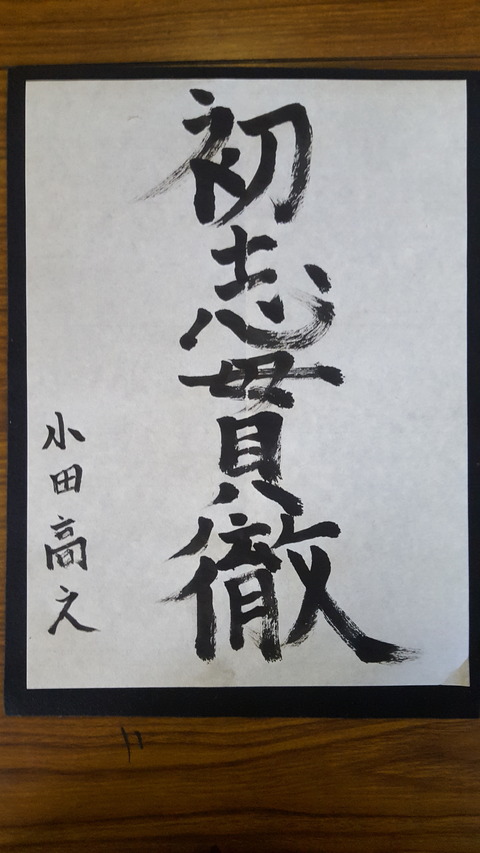 初志貫徹
小田高之